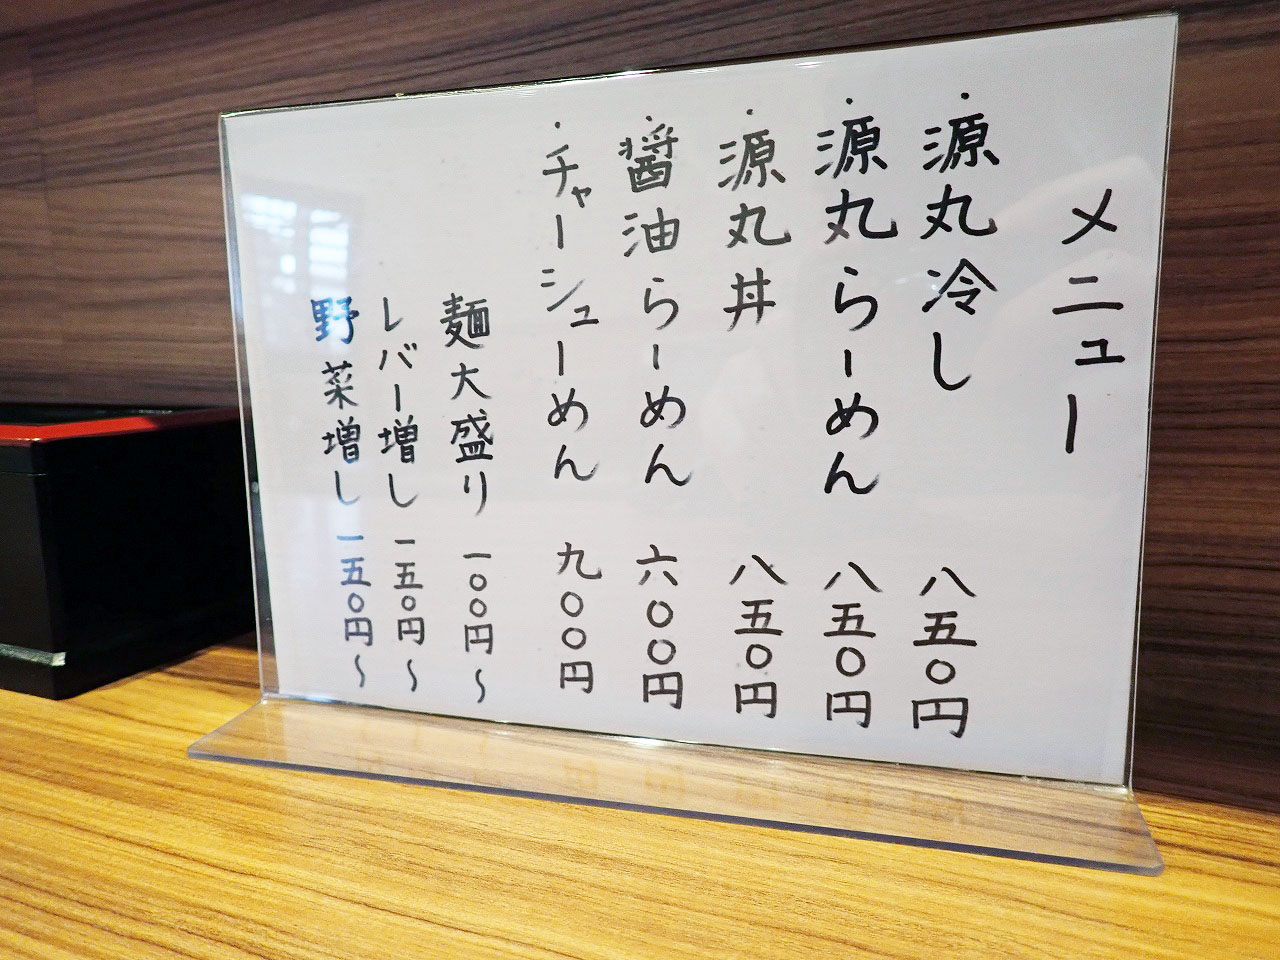 メニュー
・源丸冷し 八五〇円
・源丸らーめん 八五〇円
・源丸丼 八五〇円
・醤油らーめん 六〇〇円
・チャーシューめん 九〇〇円
麺大盛り 一〇〇円〜
レバー増し 一五〇円〜
野菜増し 一五〇円〜